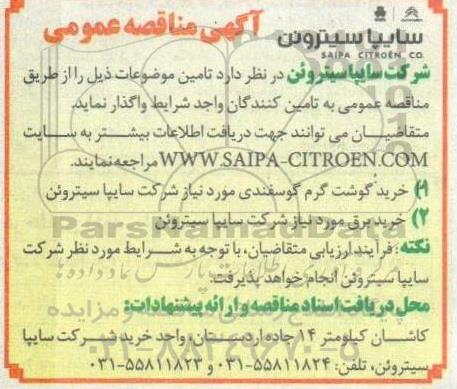 آگهی مناقصه عمومی
سایپا سیتروئن
SAIPA CITROËN CO.
شرکت سایپا سیتروئن در نظر دارد تامین موضوعات ذیل را از طریق
مناقصه عمومی به تامین کنندگان واجد شرایط واگذار نماید.
متقاضیان می توانند جهت دریافت اطلاعات بیشتر به سایت
WWW.SAIPA-CITROEN.COM مراجعه نمایند.
۱) خرید گوشت گرم گوسفندی مورد نیاز شرکت سایپا سیتروئن
۲) خرید برق مورد نیاز شرکت سایپا سیتروئن
ParsNamadData
نکته: فرآیند ارزیابی متقاضیان، با توجه به شرایط مورد نظر شرکت
سایپا سیتروئن انجام خواهد پذیرفت.
محل دریافت اسناد مناقصه و ارائه پیشنهادات:
کاشان کیلومتر ۱۴ جاده اردستان، واحد خرید شرکت سایپا
سیتروئن، تلفن: ۵۵۸۱۱۸۲۴-۰۳۱ و ۵۵۸۱۱۸۲۳-۰۳۱